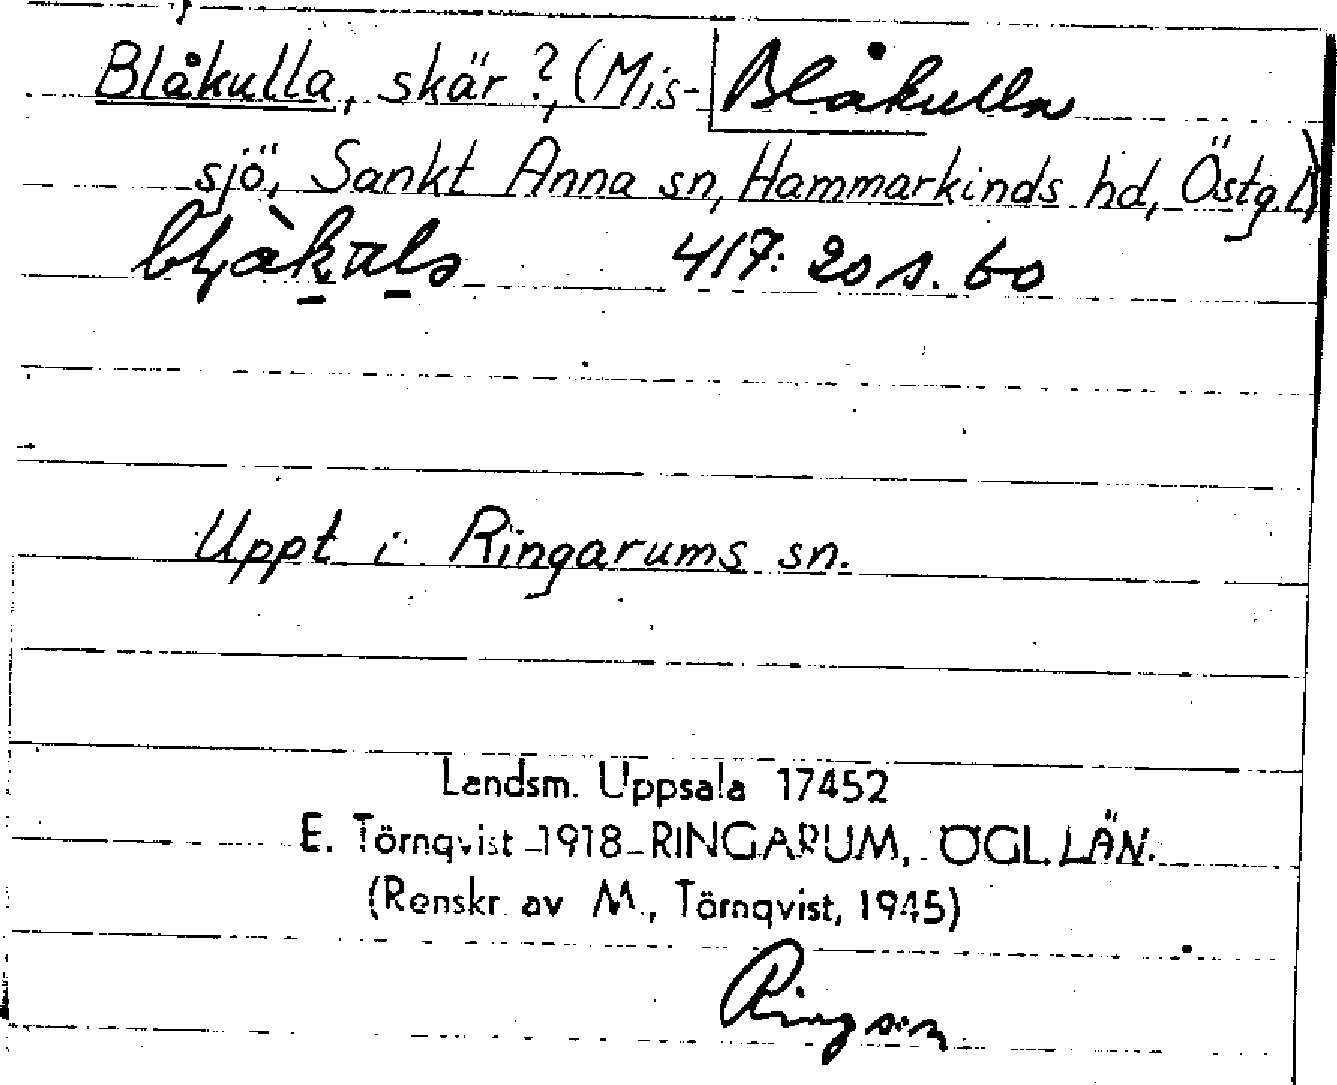 Blåkulla, skär?, (Mis- Blåkulla
sjö, Sankt Anna sn, Hammarkinds hd, Östg.l)
417: 20 s. 60
Uppt i Ringarums sn.
Landsm. Uppsala 17452
E. Törnqvist 1918 RINGARUM, ÖGL. LÄN.
(Renskr. av M., Törnqvist, 1945)